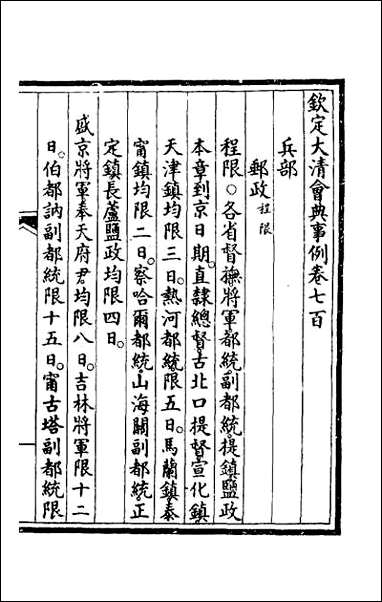 欽定大清會典事例卷七百
兵部
郵政程限
程限○各省督撫將軍都統副都統提鎮鹽政
本章到京日期。直隸總督古北口提督宣化鎮
天津鎮均限三日。熱河都統限五日。馬蘭鎮泰
甯鎮均限二日。察哈爾都統山海關副都統正
定鎮長蘆鹽政均限四日。
盛京將軍奉天府尹均限八日。吉林將軍限十二
日。伯都訥副都統限十五日。甯古塔副都統限